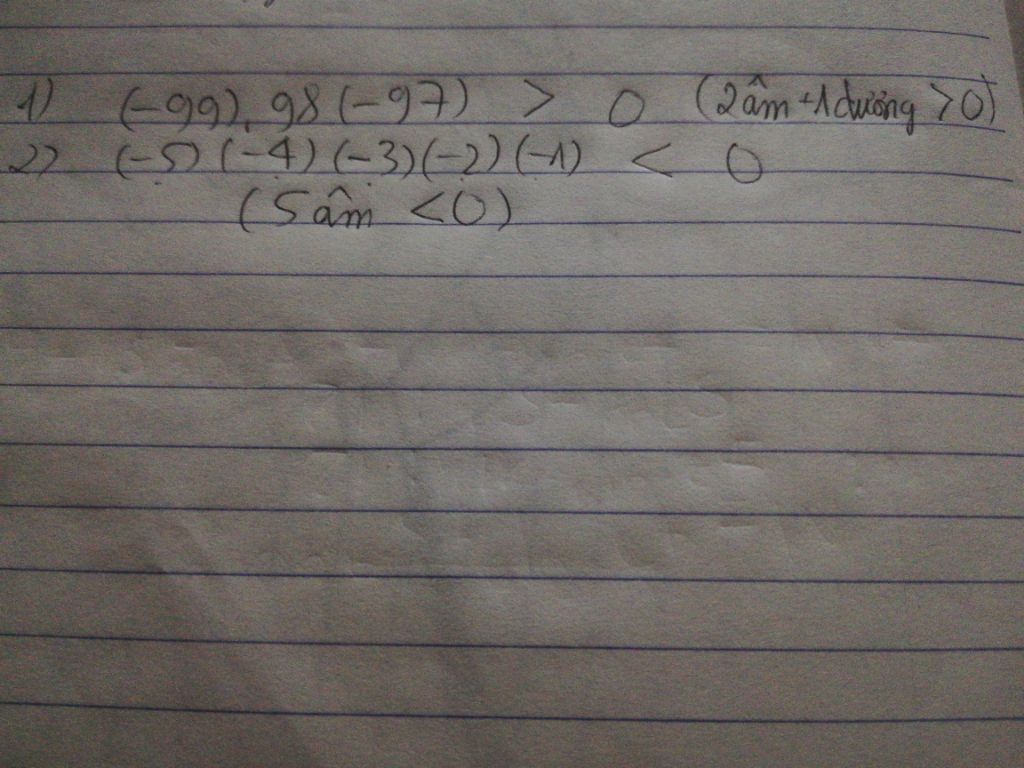 1) (-99). 98 (-97) > 0 (2 âm + 1 dương > 0)
2) (-5) (-4) (-3) (-2) (-1) < 0
(5 âm < 0)